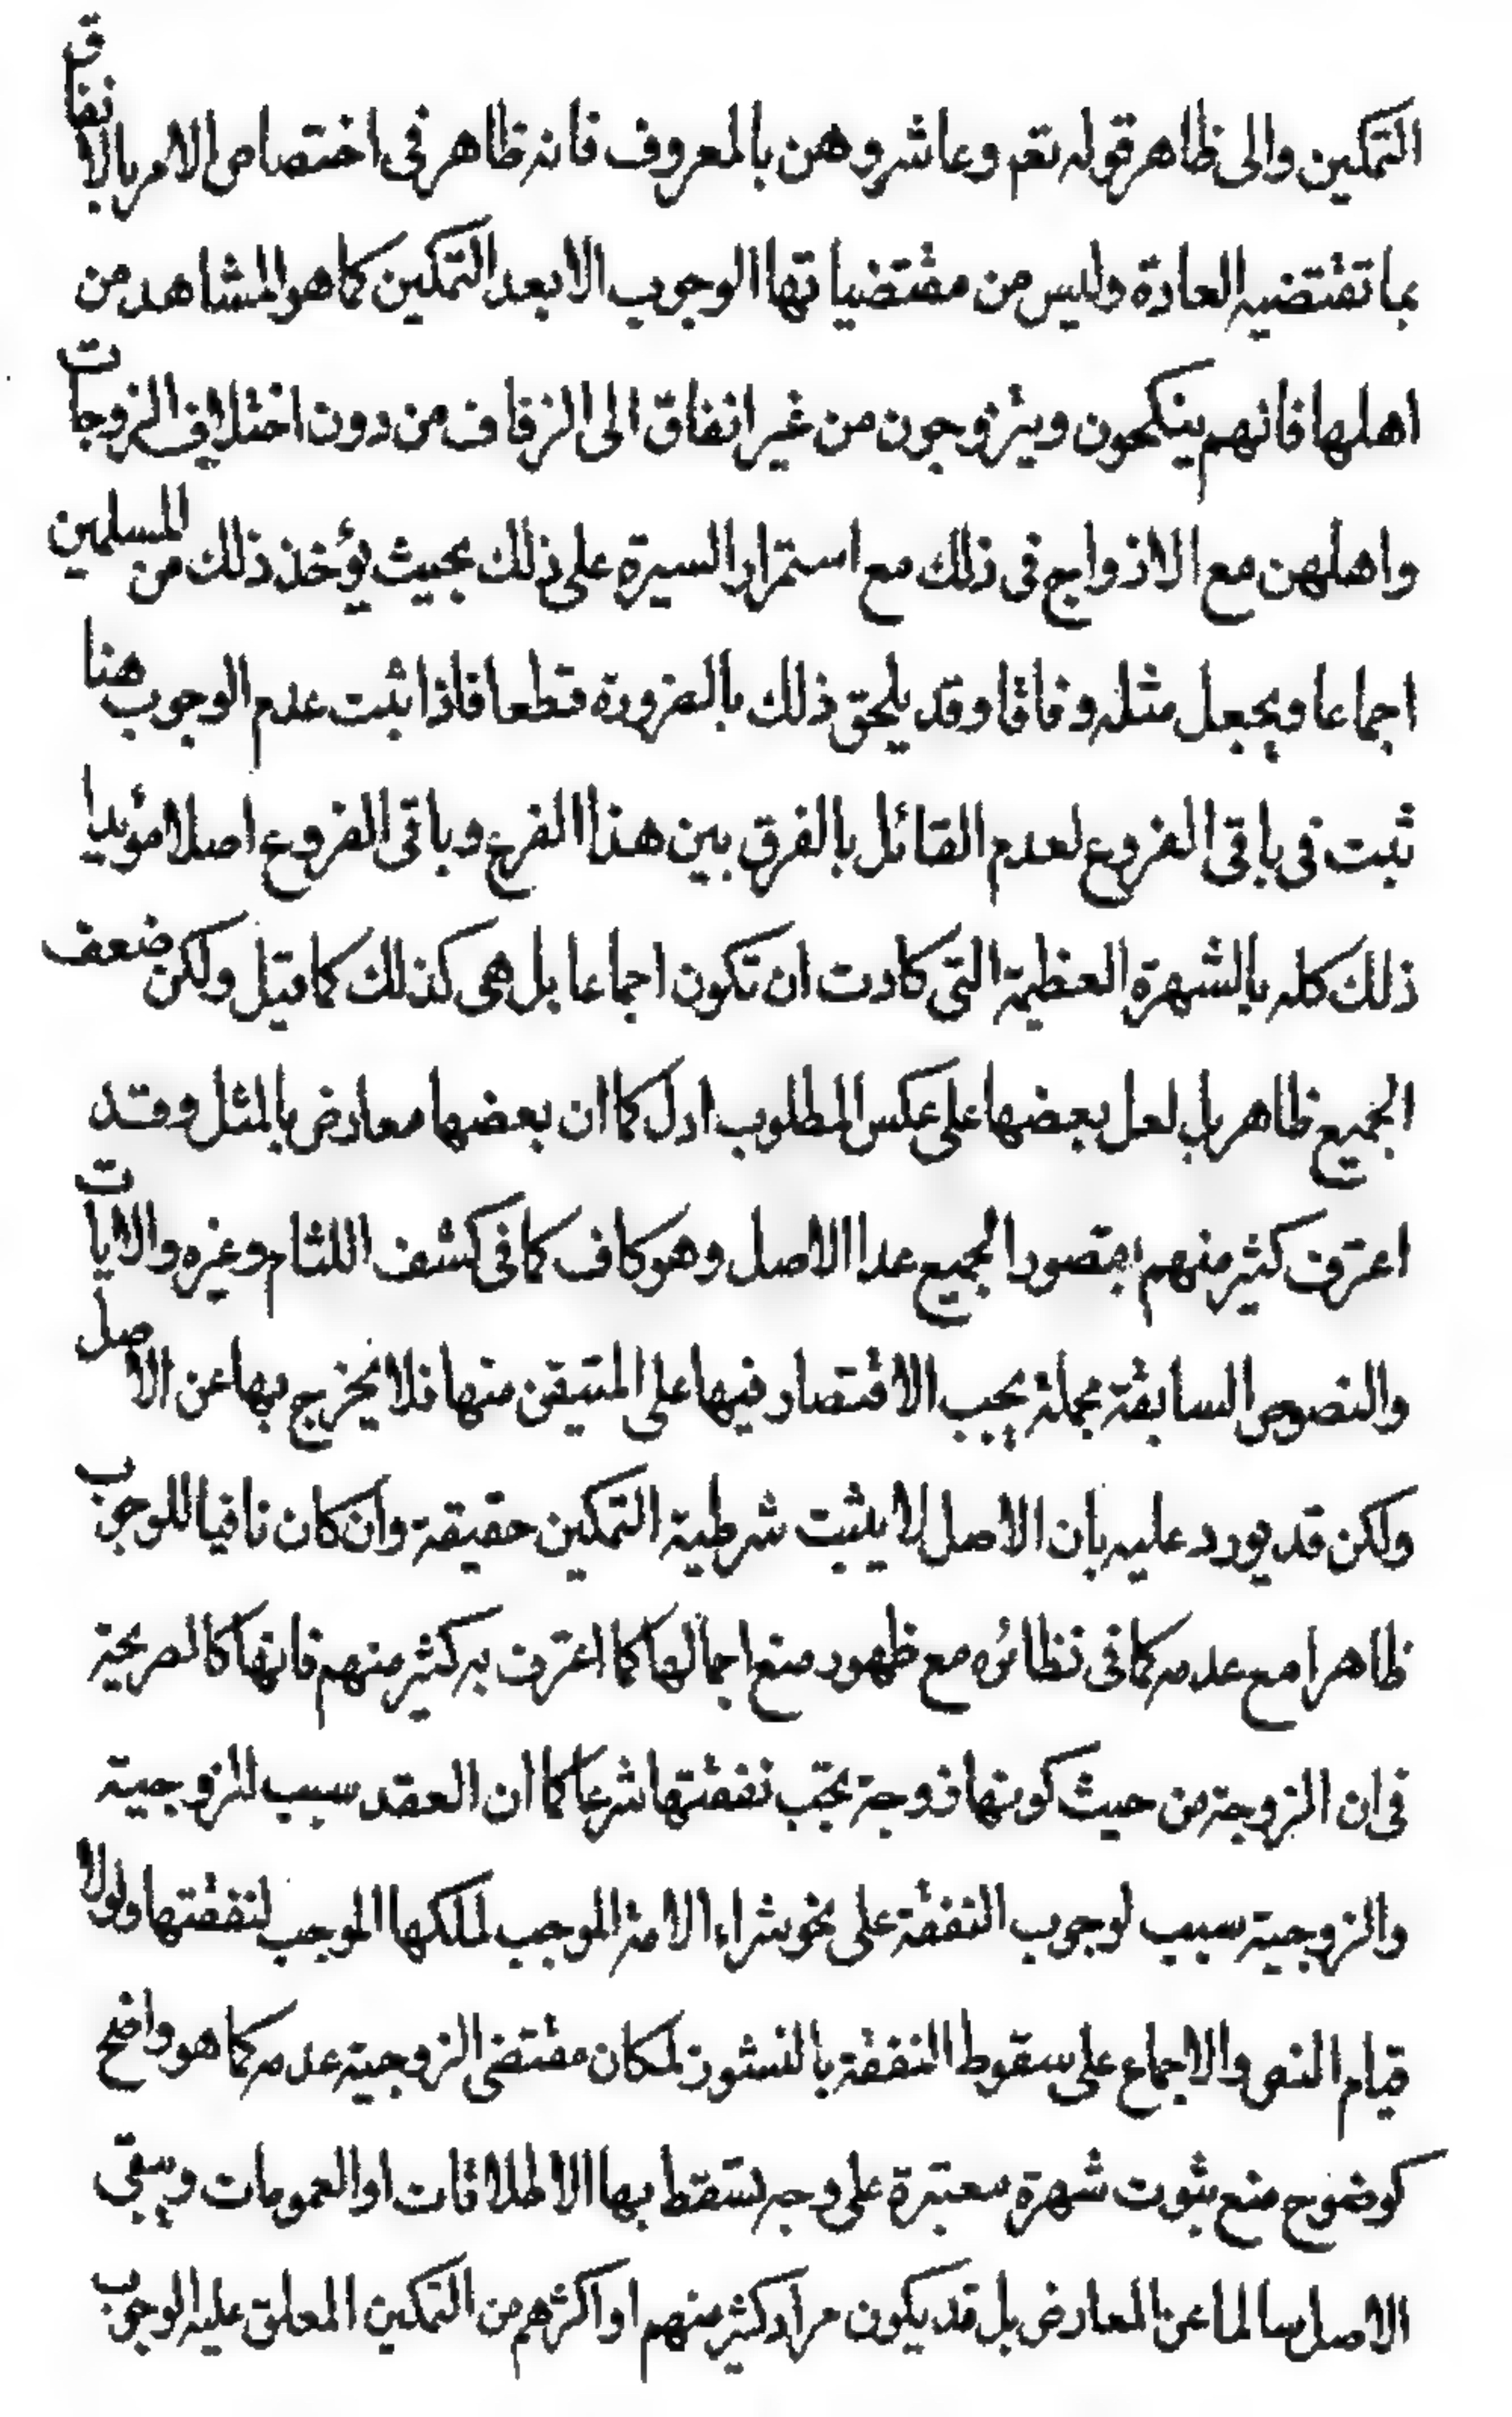 التمكين والى ظاهر قوله تعم وعاشروهن بالمعروف فانه ظاهر فى اختصاص الامر بالانفاق
بما تقتضيه العادة وليس من مقتضياتها الوجوب الا بعد التمكين كما هو المشاهد من
اهلها فانهم ينكحون ويتزوجون من غير انفاق الى الزفاف من دون اختلاف الزوجات
واهلهن مع الازواج فى ذلك مع استمرار السيرة على ذلك بحيث يؤخذ ذلك من المسلمين
اجماعا ويجعل مثله وفاقا وقد يلحق ذلك بالضرورة قطعا فاذا ثبت عدم الوجوب هنا
ثبت فى باقى الفروع لعدم القائل بالفرق بين هذا الفرع وباقى الفروع اصلا مؤيدا
ذلك كله بالشهرة العظيمة التى كادت ان تكون اجماعا بل هى كذلك كما قيل ولكن ضعف
الجميع ظاهر بل لعل بعضها على عكس المطلوب ادل كما ان بعضها معارض بالمثل وقد
اعترف كثير منهم بقصور الجميع عدا الاصل وهو كاف كما فى كشف اللثام وغيره والايات
والنصوص السابقة مجملة يجب الاقتصار فيها على المتيقن منها فلا يخرج بها عن الاصل
ولكن قد يورد عليه بان الاصل لا يثبت شرطية التمكين حقيقة وان كان نافيا للوجوب
ظاهرا مع عدمه كما فى نظائره مع ظهور منع اجمالها كما اعترف به كثير منهم فانها كالصريحة
فى ان الزوجة من حيث كونها زوجة تجب نفقتها شرعا كما ان العقد سبب للزوجية
والزوجية سبب لوجوب النفقة على نحو شراء الامة الموجب لملكها الموجب لنفقتها ولولا
قيام النص والاجماع على سقوط النفقة بالنشوز لمكان مقتضى الزوجية عدمه كما هو واضح
كوضوح منع ثبوت شهرة معتبرة على وجه تسقط بها الاطلاقات او العمومات ويبقى
الاصل سالما عن المعارض بل قد يكون مراد كثير منهم او اكثرهم من التمكين المعلق عليه الوجوب